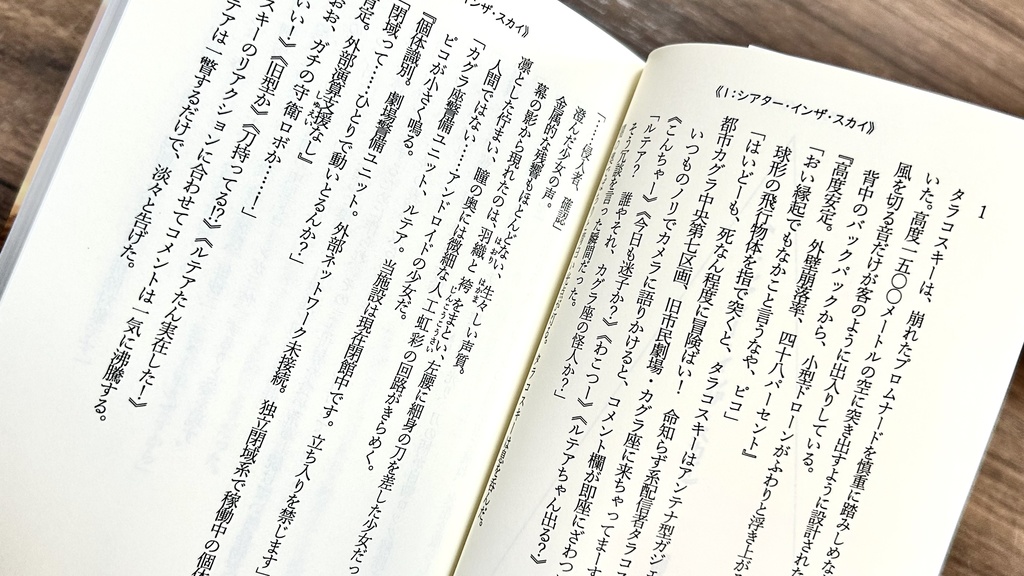 《1:シアター・インザ・スカイ》
1
タラコスキーは、崩れたプロムナードを慎重に踏みしめな
いた。高度一五〇〇メートルの空に突き出すように設計された
風を切る音だけが客のように出入りしている。
背中のバックパックから、小型ドローンがふわりと浮き上が
『高度安定。外壁崩落率、四十八パーセント』
「おい縁起でもなかこと言うなや、ピコ」
球形の飛行物体を指で突くと、タラコスキーはアンテナ型ガジェ
「はいどーも、死なん程度に冒険ばい！　命知らず系配信者タラコス
都市カグラ中央第七区画、旧市民劇場・カグラ座に来ちゃってまーす
いつものノリでカメラに語りかけると、コメント欄が即座にざわつ
《こんちゃー》《今日も迷子か？》《わこつー》《ルテアちゃん出る？》
「ルテア？　誰やそれ、カグラ座の怪人か？」
そう冗談を言った瞬間だった。
タラコスキーは息を呑んだ。
インザ・スカイ》
「……侵入者、確認」
澄んだ少女の声。
金属的な残響もほとんどない、生々しい声質。
幕の影から現れたのは、羽織と袴をまとい、左腰に細身の刀を差した少女だっ
凛とした佇まい、瞳の奥には微細な人工虹彩の回路がきらめく。
人間ではない……アンドロイドの少女だ。
「カグラ座警備ユニット、ルテア。当施設は現在閉館中です。立ち入りを禁じます」
ピコが小さく鳴る。
『個体識別。劇場警備ユニット。外部ネットワーク未接続。独立閉域系で稼働中の個体
「閉域って……ひとりで動いとるんか？」
肯定。外部演算支援なし』
おお、ガチの守衛ロボか……！」
いい！》《旧型か》《刀持ってる!?》《ルテアたん実在した！》
スキーのリアクションに合わせてコメントは一気に沸騰する。
テアは一瞥するだけで、淡々と告げた。